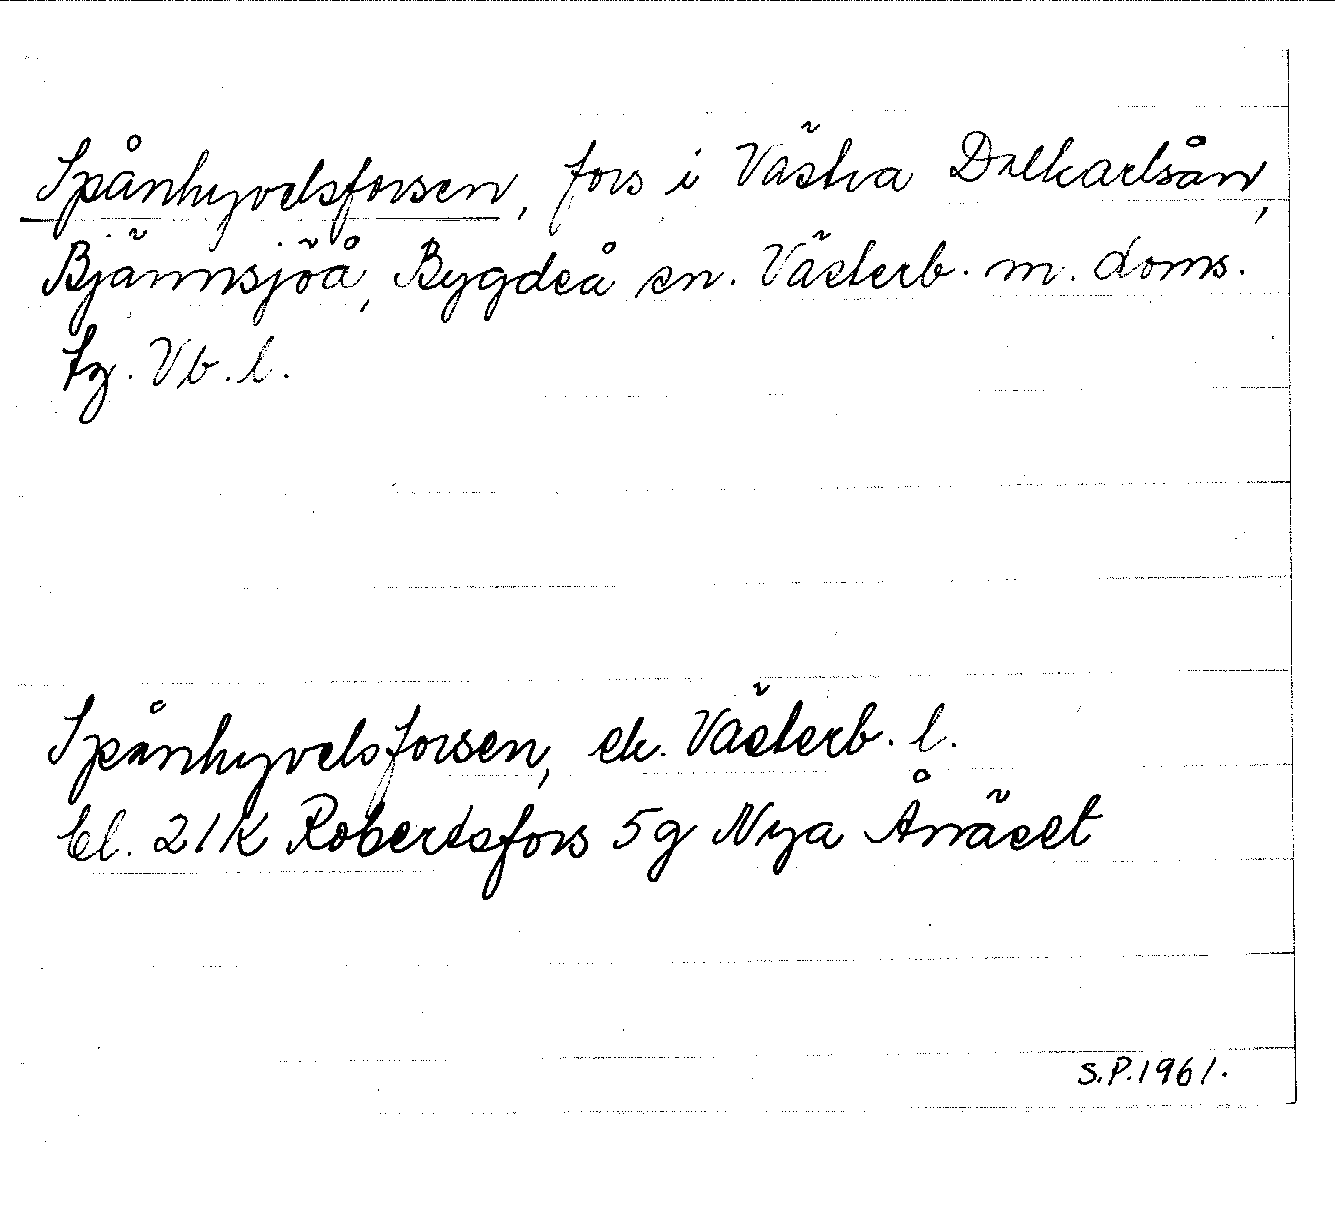 Spånhyvelsforsen, fors i Västra Dalkarlsån,
Bjännsjöå, Bygdeå sn. Västerb. m. doms.
tg. Vb. l.
Spånhyvelsforsen, ek. Västerb. l.
bl. 21K Robertsfors 5g Nya Ånäset
S.P. 1961.